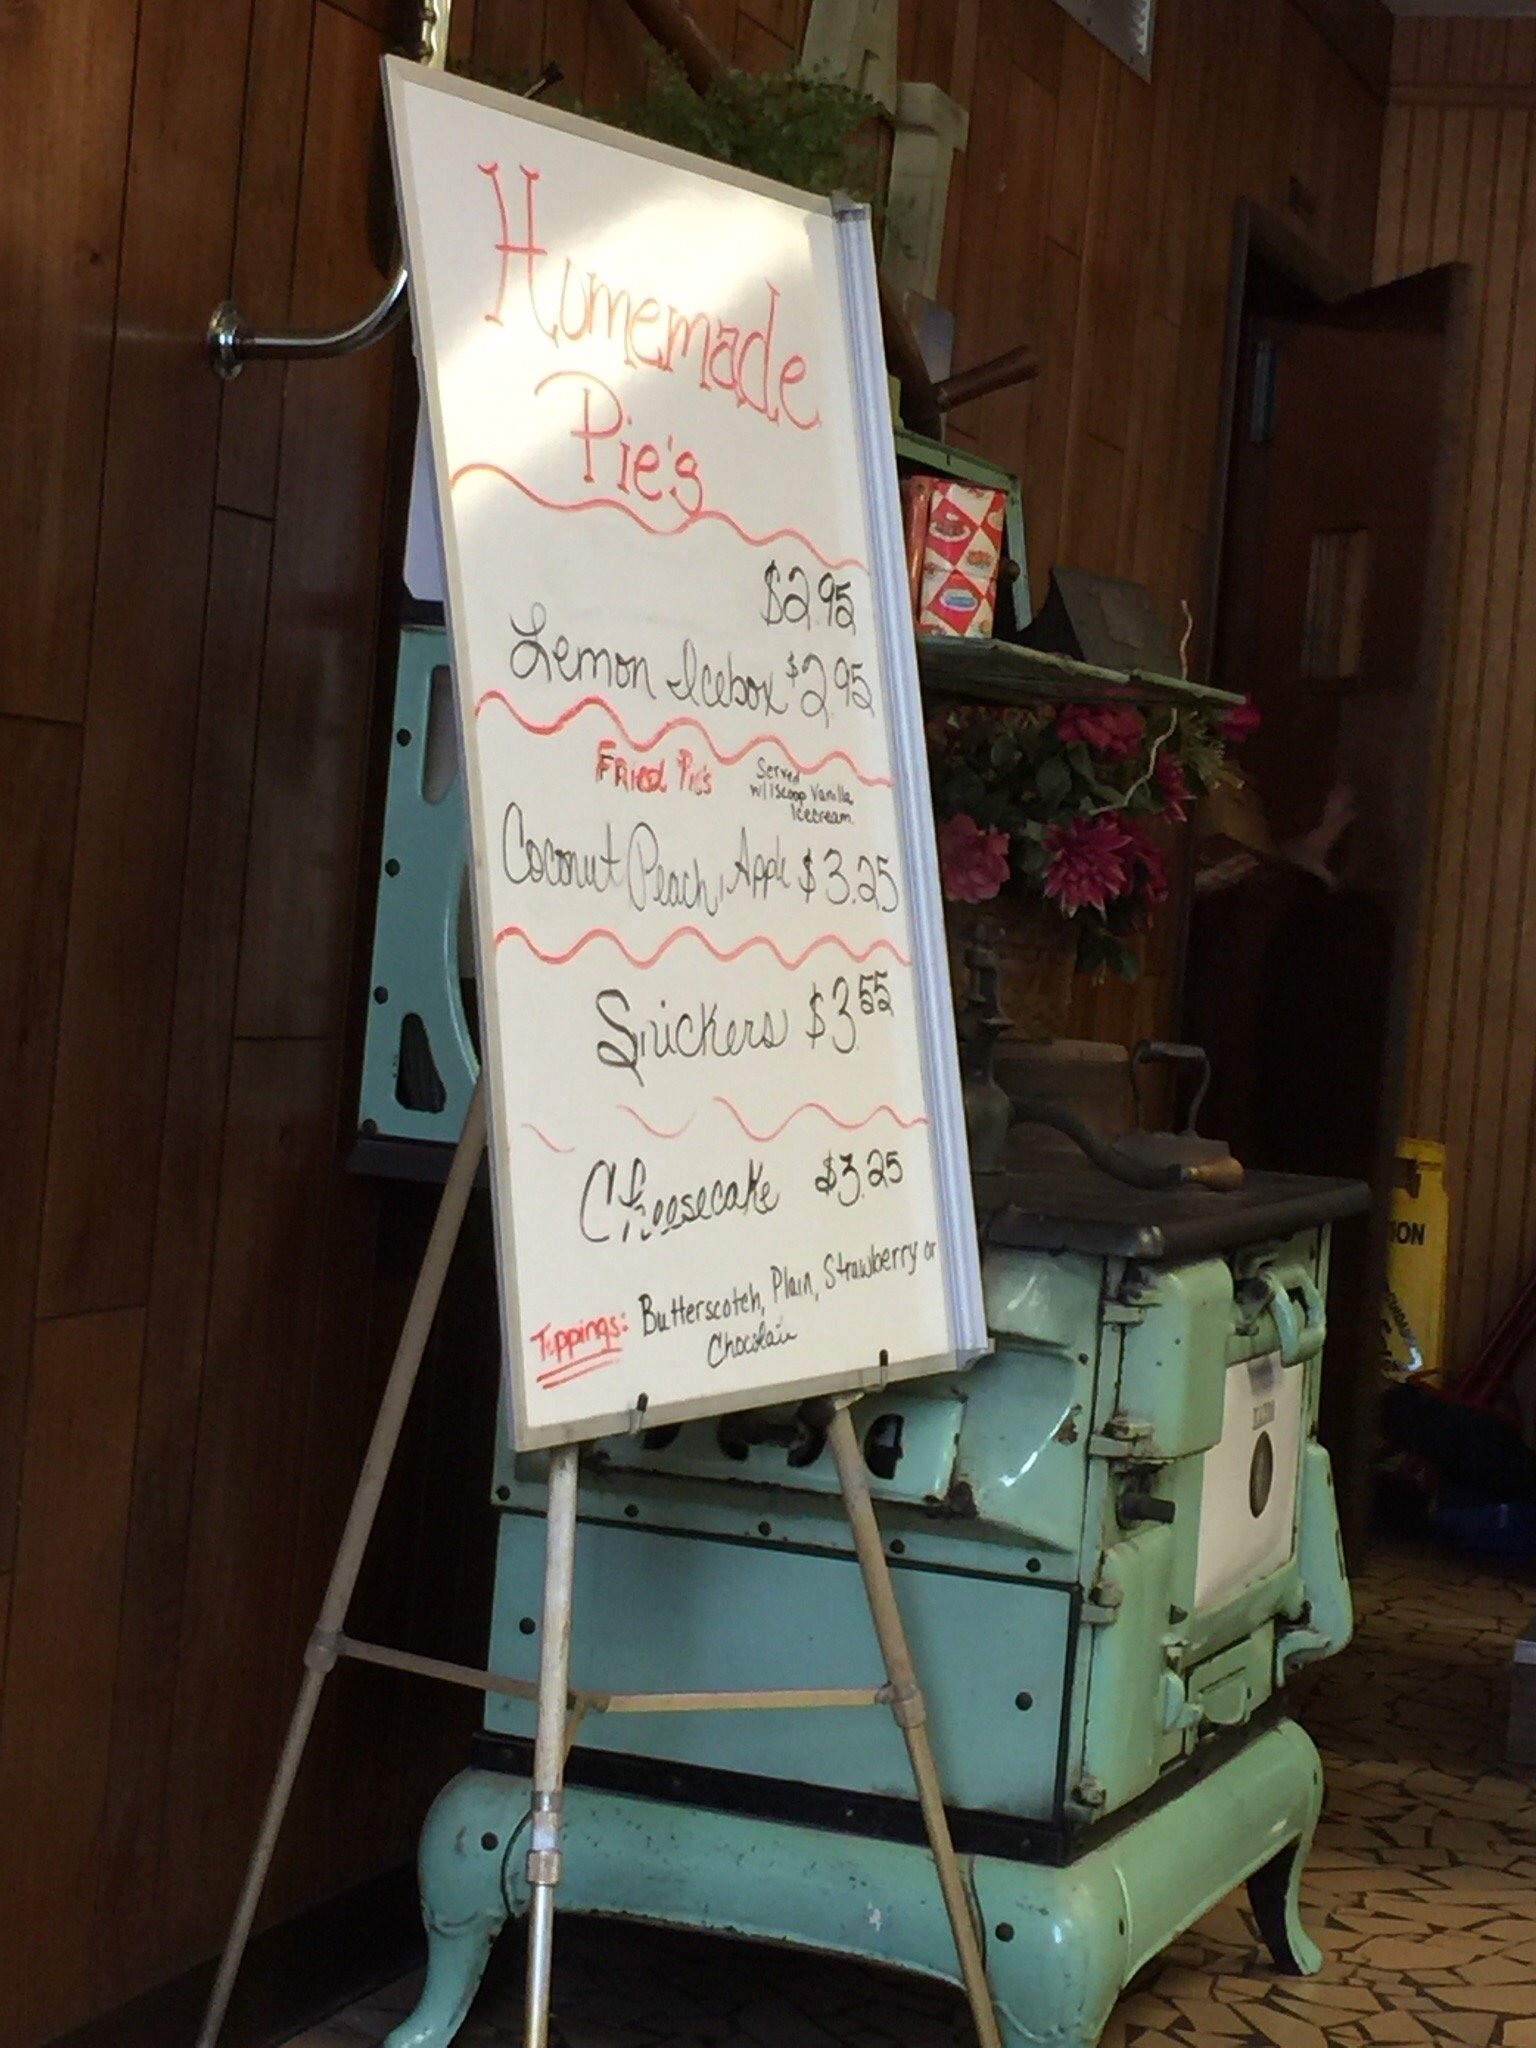 Homemade
Pie's
$2.95
Lemon Icebox $2.95
Fried Pie's
Served
w/1 Scoop Vanilla
Icecream
Coconut Peach, Apple $3.25
Snickers $3.55
Cheesecake $3.25
Toppings: Butterscotch, Plain, Strawberry or
Chocolate
ION